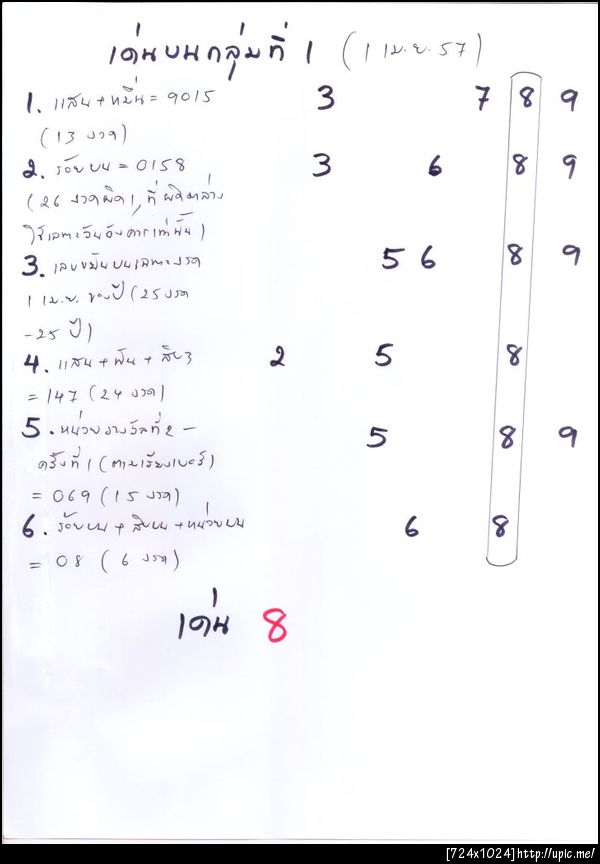 เด่นบนกลุ่มที่ 1 (1 เม.ย. 57)
1. แสน + หมื่น = 9015 3 7 8 9
(13 งวด)
2. ร้อยบน = 0158 3 6 8 9
(26 งวดผิด 1, ที่
ใช้เฉพาะวันอังคารเท่านั้น)
3. เลขขมันบนเฉพาะงวด 5 6 8 9
1 เม.ย. ของปี (25 งวด
-25 ปี)
4. แสน + พัน + สิบ3 2 5 8
= 147 (24 งวด)
5. หน่วยรางวัลที่ 2 - 5 8 9
ครั้งที่ 1 (ตามเรียงเบอร์)
= 069 (15 งวด)
6. ร้อยบน + สิบบน + หน่วยบน 6 8
= 08 (6 งวด)
เด่น 8
[724x1024]http://upic.me/